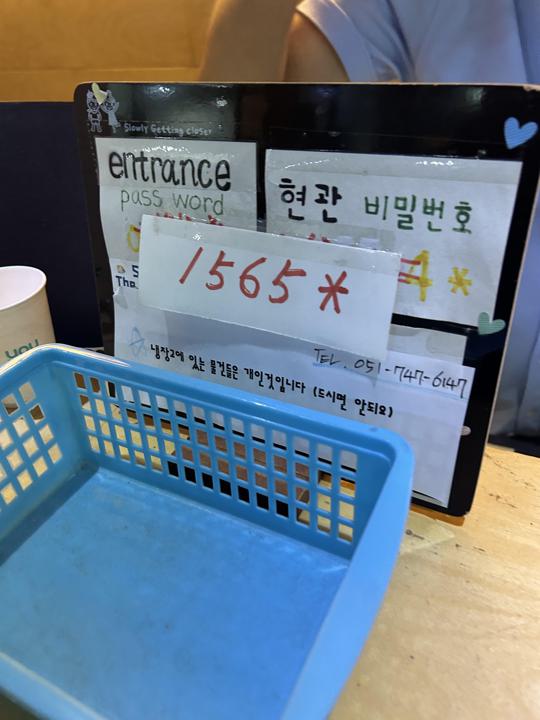 Slowly Getting closer
entrance
pass word
현관 비밀번호
1565*
TEL. 051-747-6147
냉장고에 있는 물건들은 개인것입니다 (드시면 안되요)
you